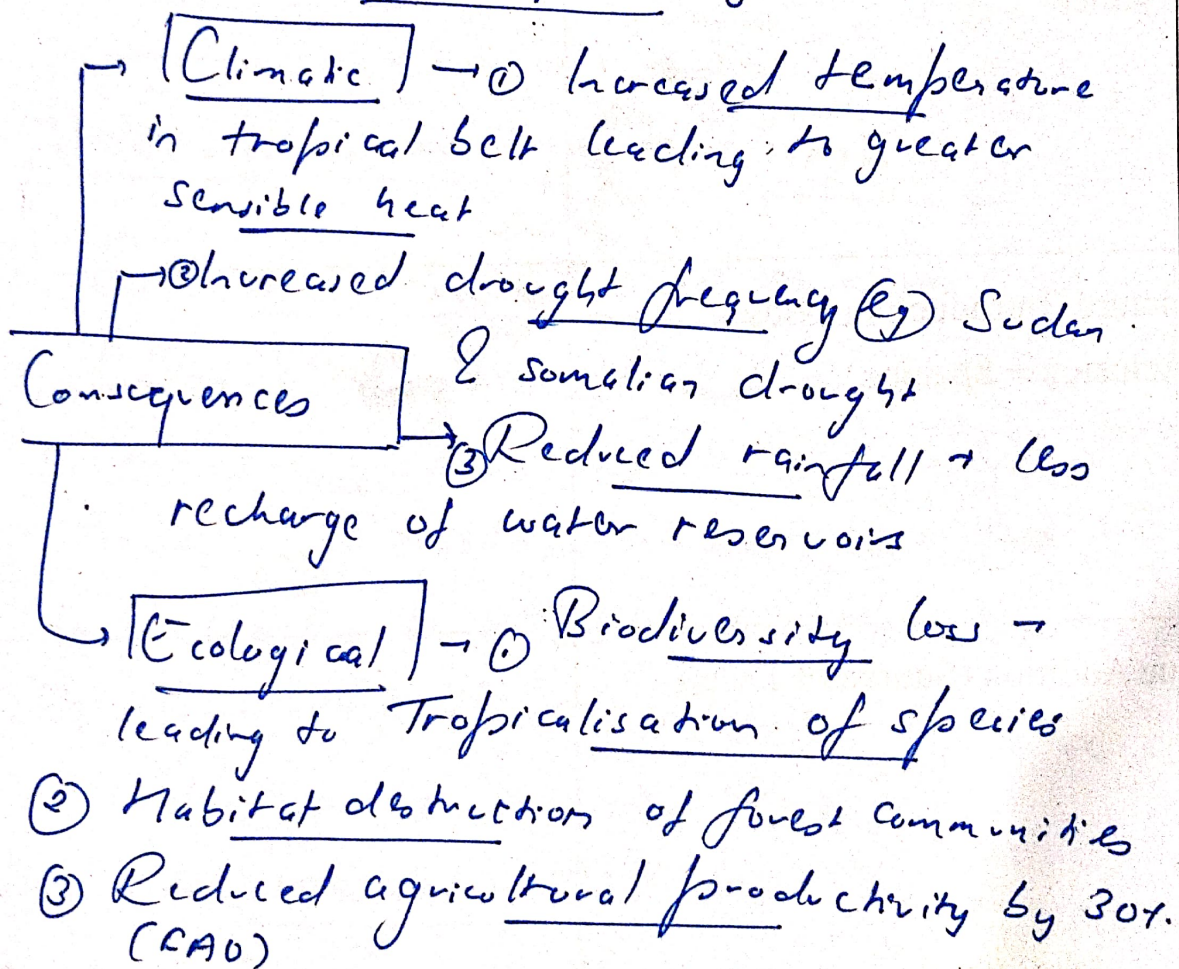 Climatic → ① Increased temperature
in tropical belt leading to greater
sensible heat
→ ② Increased drought frequency eg Sudan
& somalian drought
Consequences
→ ③ Reduced rainfall → less
recharge of water reservoirs
Ecological → ① Biodiversity loss →
leading to Tropicalisation of species
② Habitat destruction of forest communities
③ Reduced agricultural productivity by 30%.
(FAO)